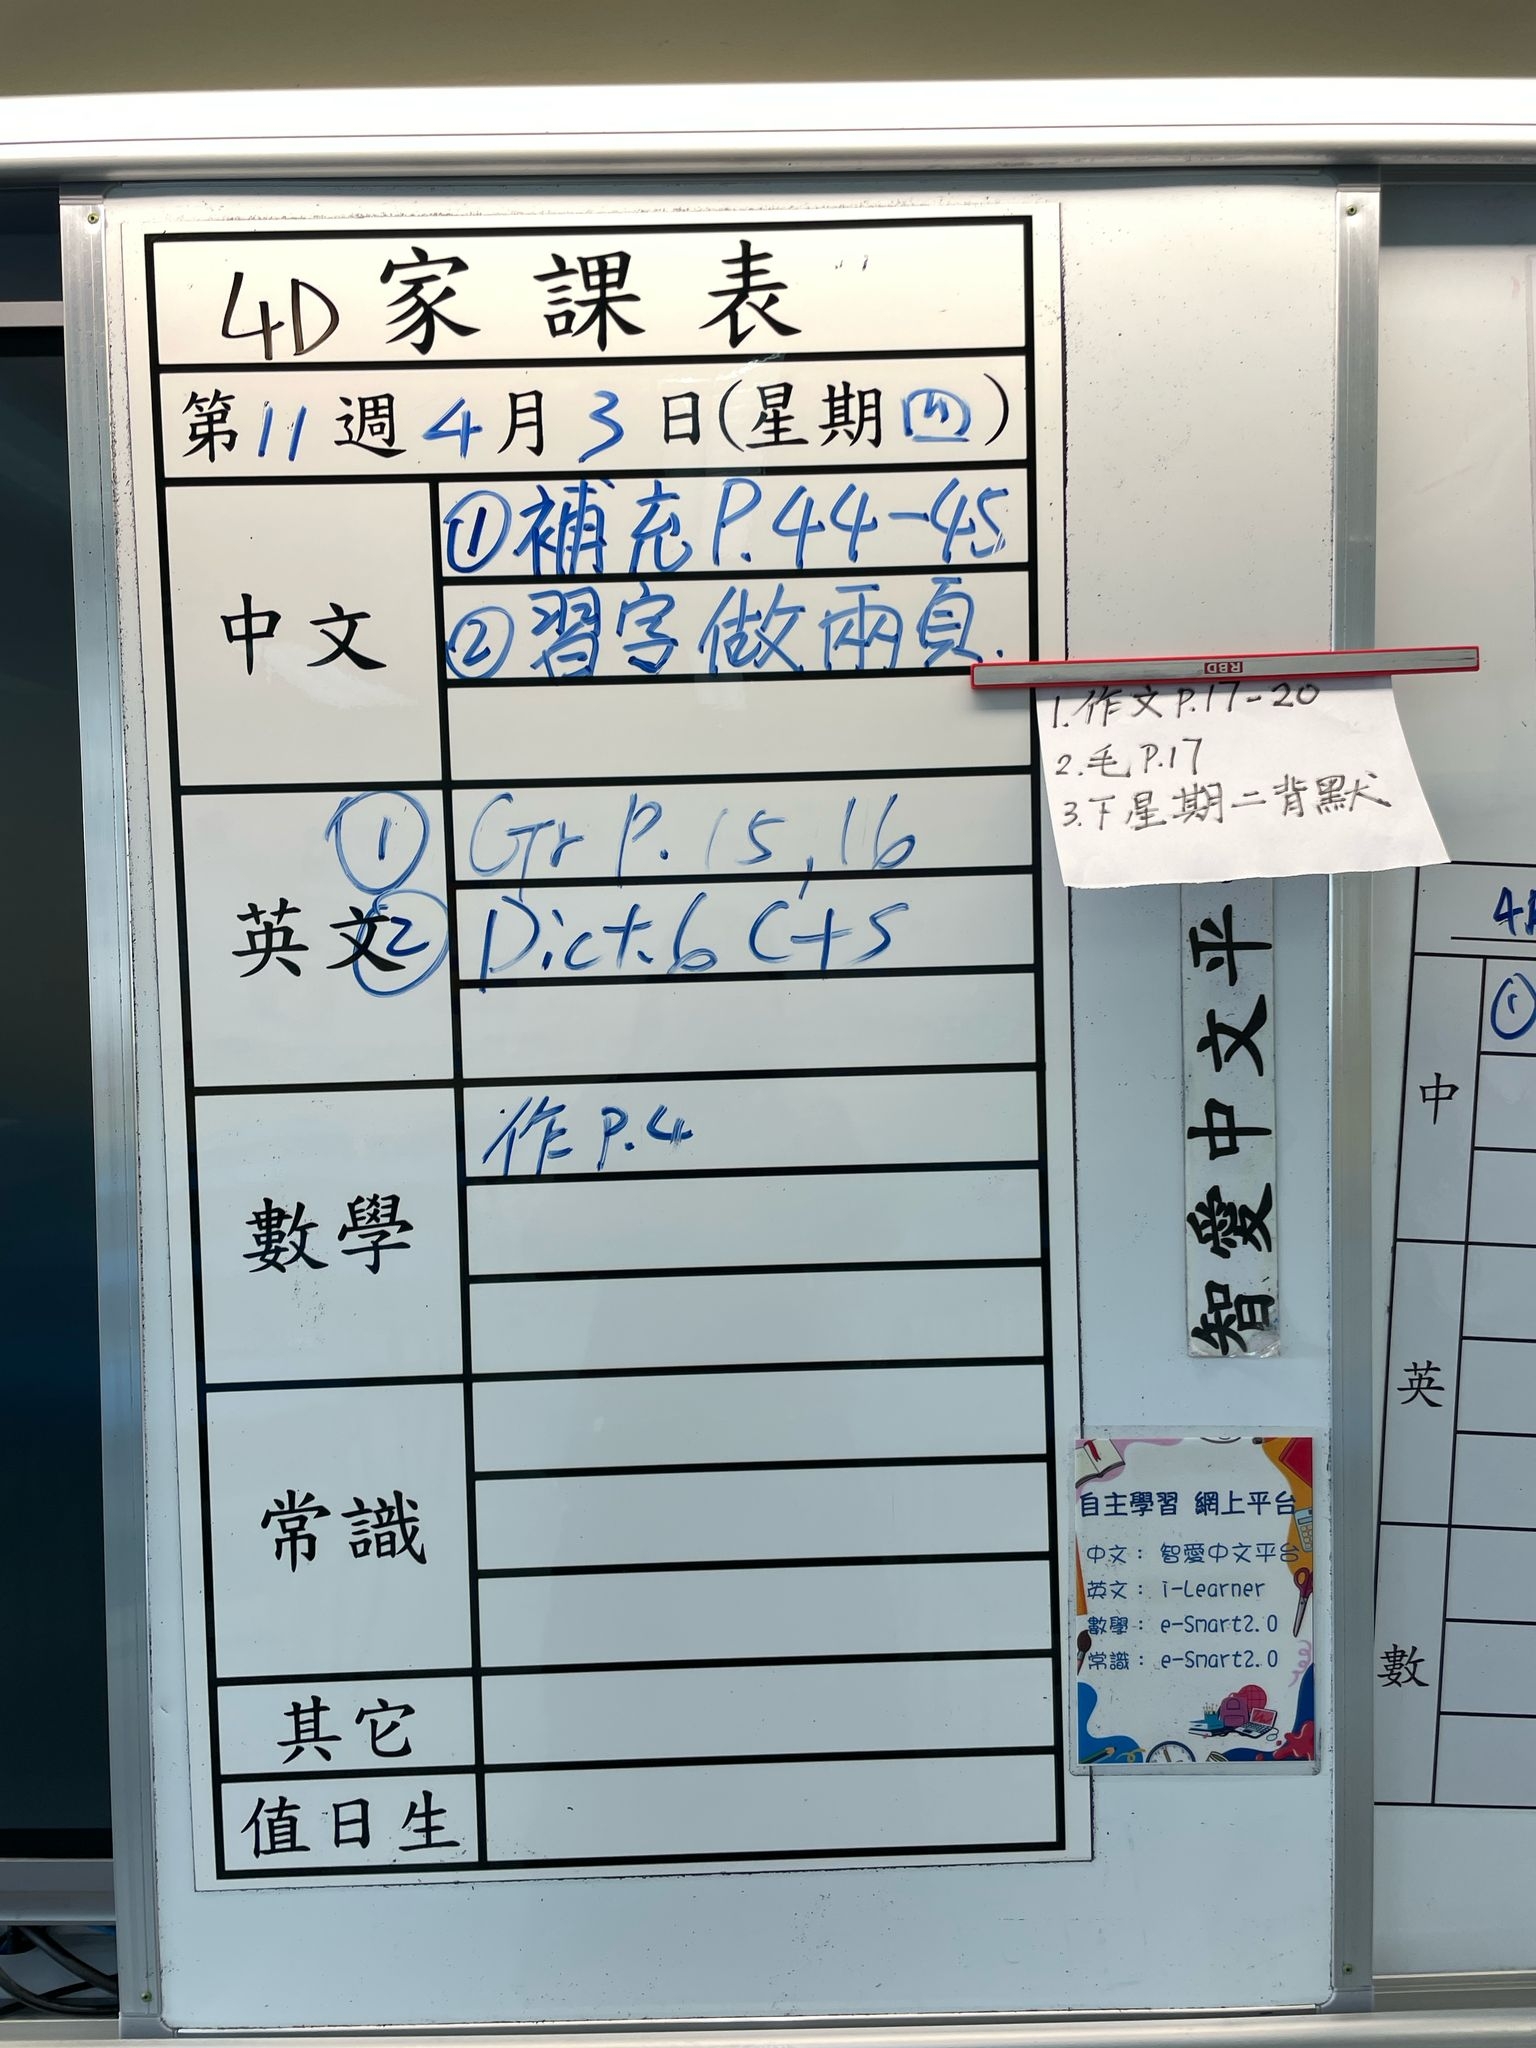 4D 家課表
第11週4月3日(星期四)
中文
①補充P.44-45
②習字做兩頁.
英文
① Gr P. 15, 16
② Dict.6 C+S
數學
作 P.4
常識
其它
值日生
RBD
1.作文P.17-20
2.毛P.17
3.下星期二背默
智愛中文平
自主學習 網上平台
中文: 智愛中文平台
英文: i-Learner
數學: e-Smart2.0
常識: e-Smart2.0
中
①
英
數